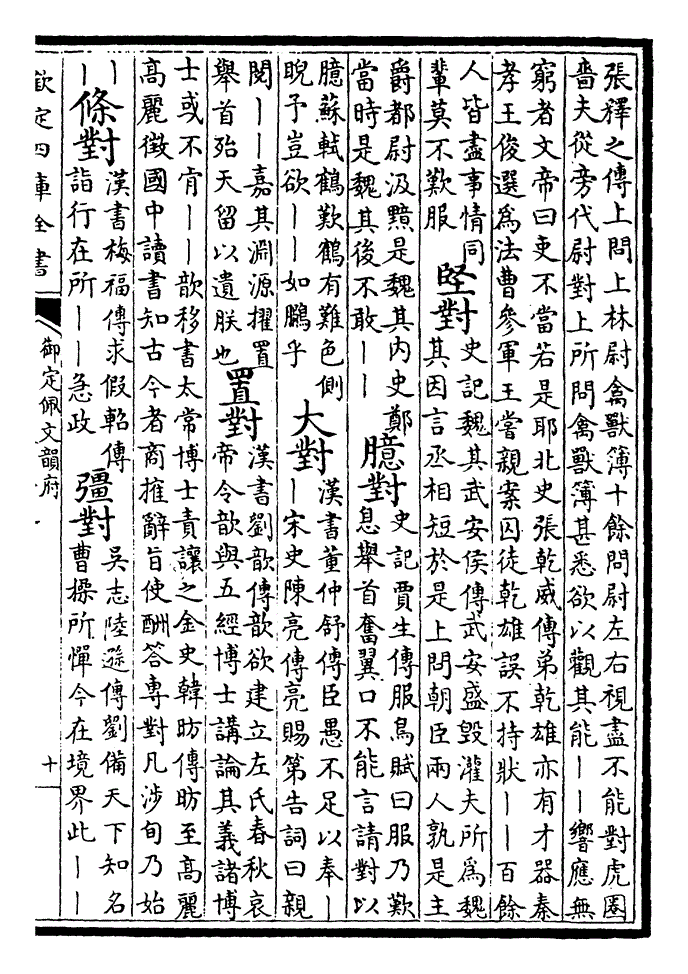 張釋之傳上問上林尉禽獸簿十餘問尉左右視盡不能對虎圈
嗇夫從旁代尉對上所問禽獸簿甚悉欲以觀其能丨丨響應無
窮者文帝曰吏不當若是耶北史張乾威傳弟乾雄亦有才器秦
孝王俊選為法曹參軍王嘗親案囚徒乾雄誤不持狀丨丨百餘
人皆盡事情同
輩莫不歎服
堅對
史記魏其武安侯傳武安盛毀灌夫所為魏
其因言丞相短於是上問朝臣兩人孰是主
爵都尉汲黯是魏其内史鄭
當時是魏其後不敢丨丨
臆對
史記賈生傳服鳥賦曰服乃歎
息舉首奮翼口不能言請對以
臆蘇軾鶴歎鶴有難色側
睨予豈欲丨丨如鵬乎
大對
漢書董仲舒傳臣愚不足以奉丨
丨宋史陳亮傳亮賜第告詞曰親
閱丨丨嘉其淵源擢置
舉首殆天留以遺朕也
置對
漢書劉歆傳歆欲建立左氏春秋哀
帝令歆與五經博士講論其義諸博
士或不肯丨丨歆移書太常博士責讓之金史韓昉傳昉至高麗
高麗徴國中讀書知古今者商搉辭旨使酬答專對凡涉旬乃始
丨
丨
條對
漢書梅福傳求假軺傳
詣行在所丨丨急政
彊對
吳志陸遜傳劉備天下知名
曹操所憚今在境界此丨丨
欽定四庫全書
御定佩文韻府
十